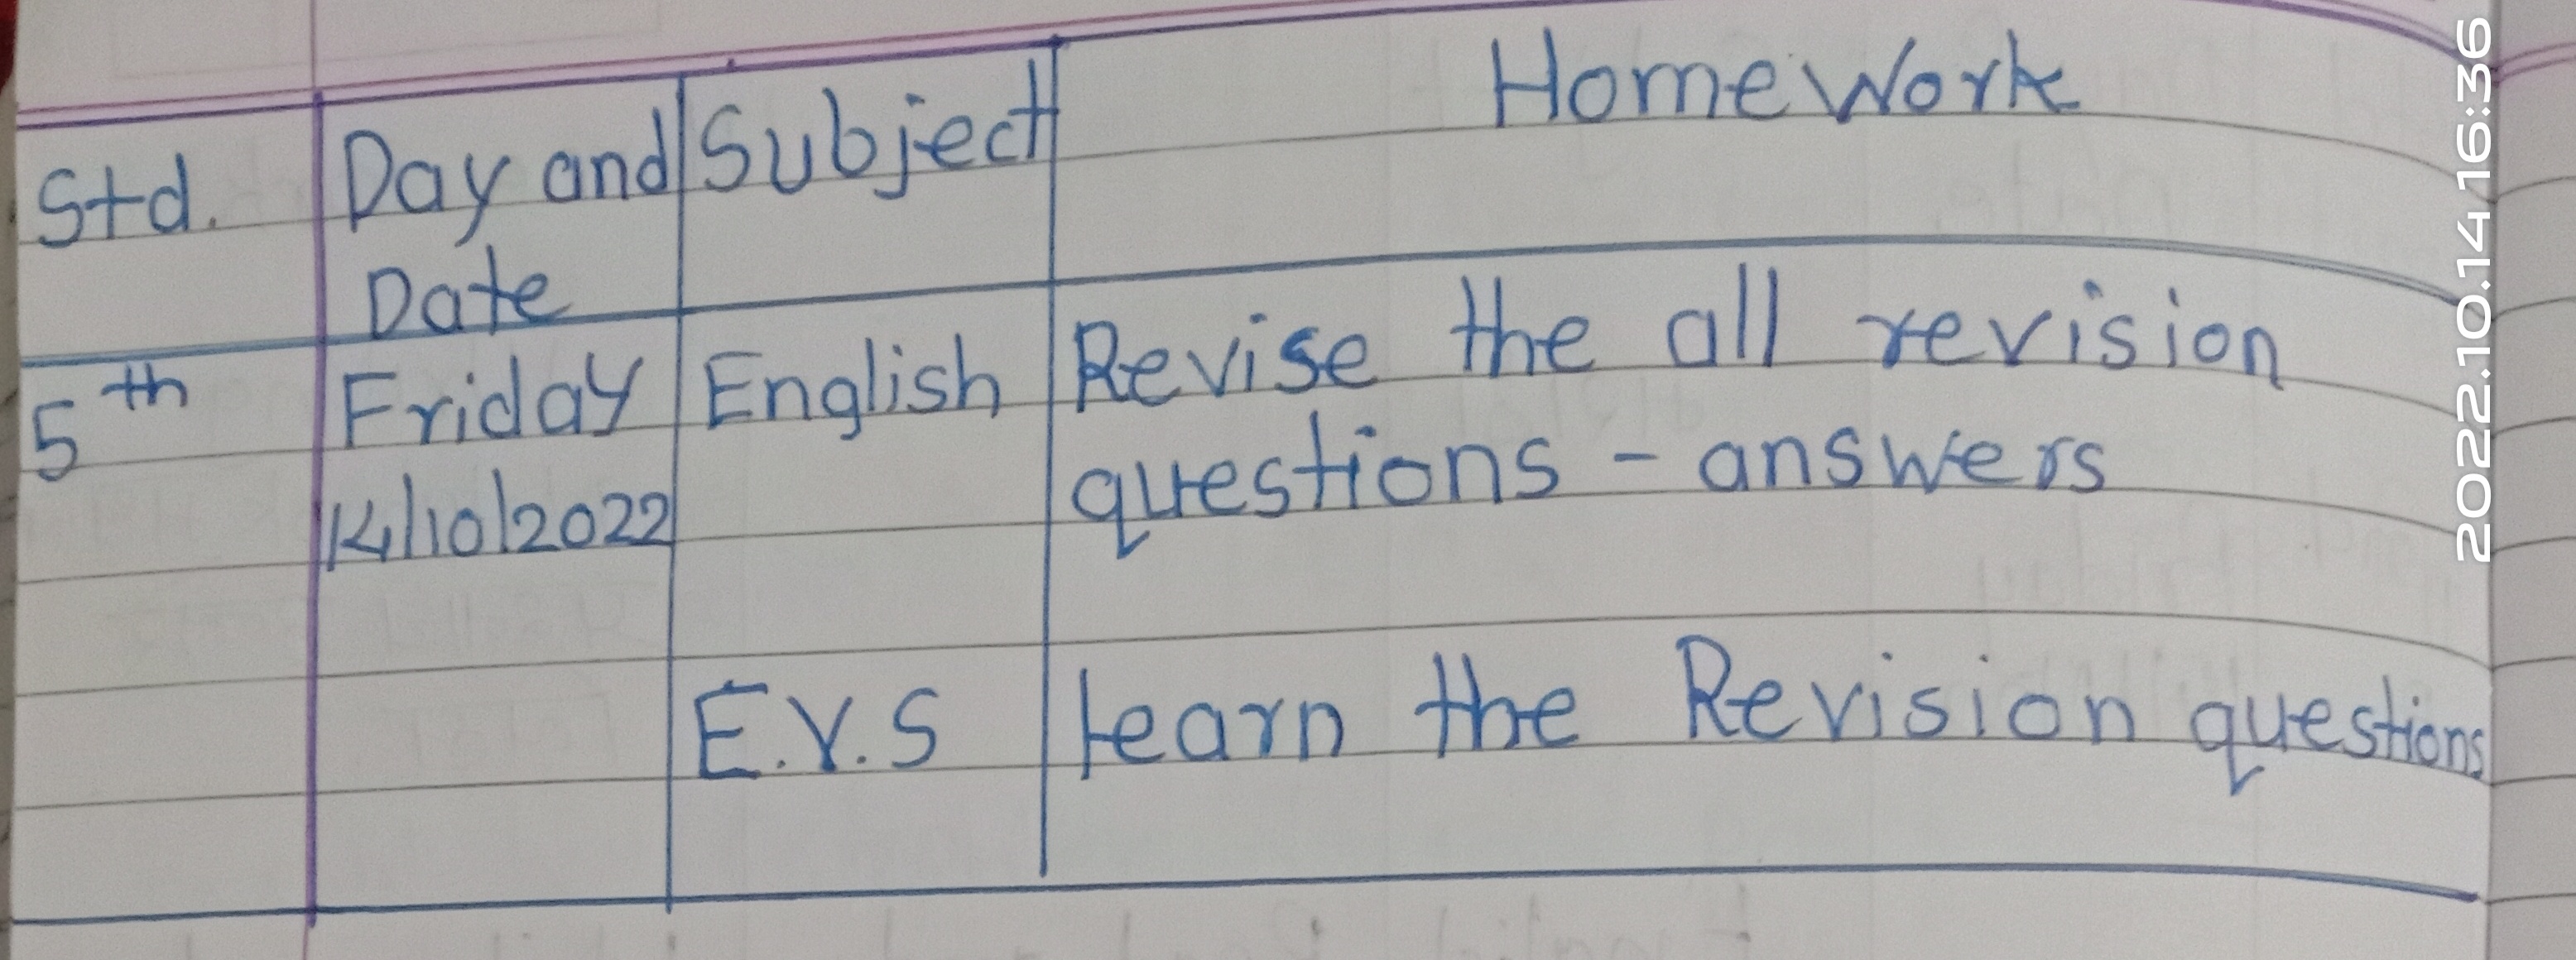 Std. Day and Date Subject HomeWork
5th Friday English Revise the all revision
14/10/2022 questions - answers
E.V.S learn the Revision questions
2022.10.14 16:36